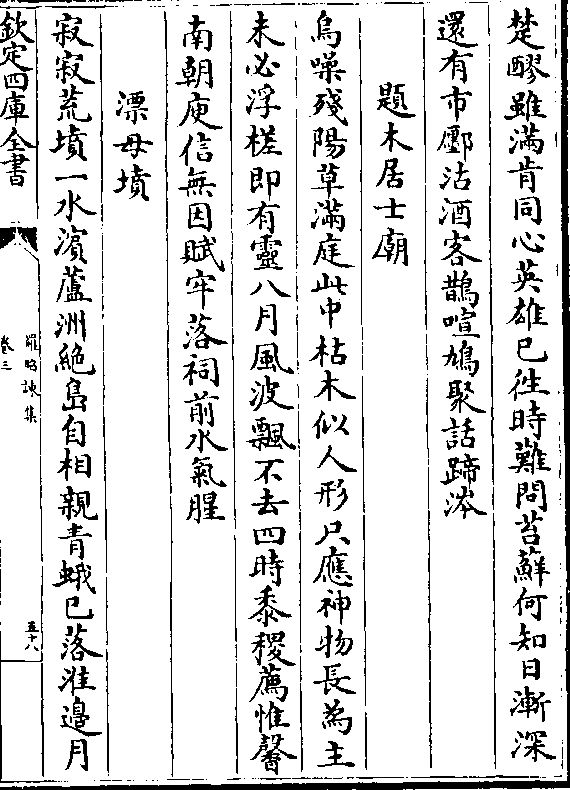 楚醪雖滿肯同心英雄已徃時難問苔蘚何知日漸深
還有市鄽沽酒客鵲喧鳩聚話蹄涔
題木居士廟
烏噪殘陽草滿庭此中枯木似人形只應神物長為主
未必浮槎即有靈八月風波飄不去四時黍稷薦惟馨
南朝庾信無因賦牢落祠前水氣腥
漂母墳
寂寂荒墳一水濱蘆洲絶島自相親青蛾已落淮邉月
欽定四庫全書
羅昭諫集
卷三
五十八